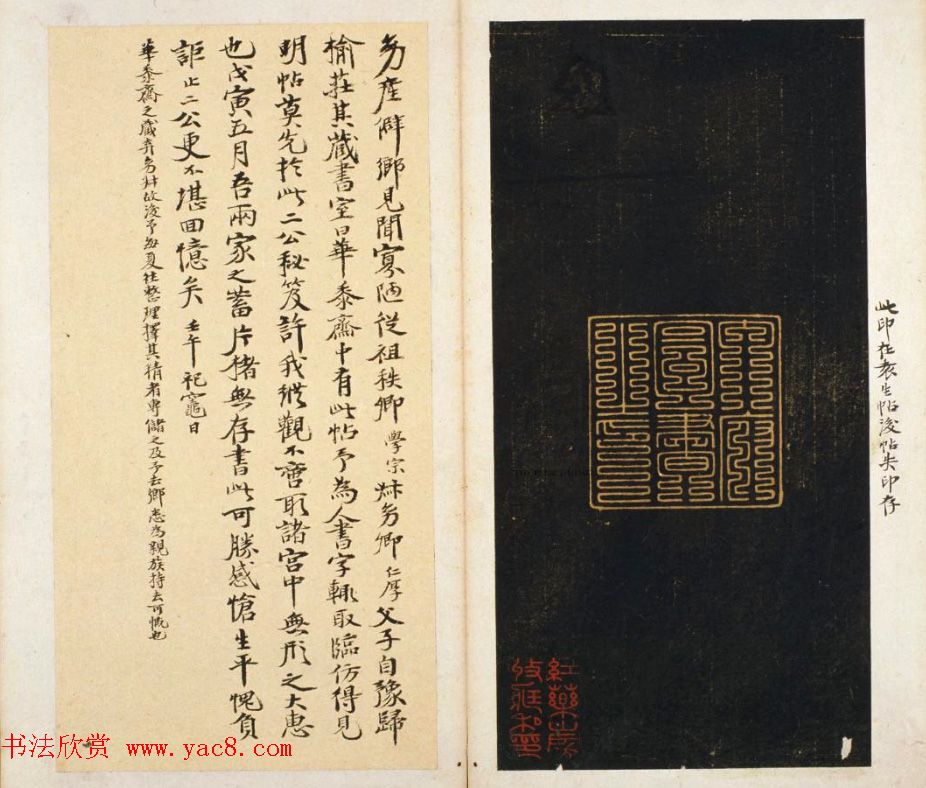 此印在袁生帖後帖失印存
宣和
產僻鄉見聞寡陋從祖秩卿學宗叔勇卿仁厚父子自豫歸
榆莊其藏書室曰華黍齋中有此帖予為人書字輒取臨仿得見
明帖莫先於此二公秘笈許我縱觀不啻取諸宮中無形之大惠
也戊寅五月吾兩家之蓄片楮無存書此可勝感愴生平愧負
詎止二公更不堪回憶矣 壬午祀竈日
華黍齋之藏弆故後予每夏往整理擇其精者專儲之及予去鄉悉為親族持去可慨也
书法欣赏 www.yac8.com